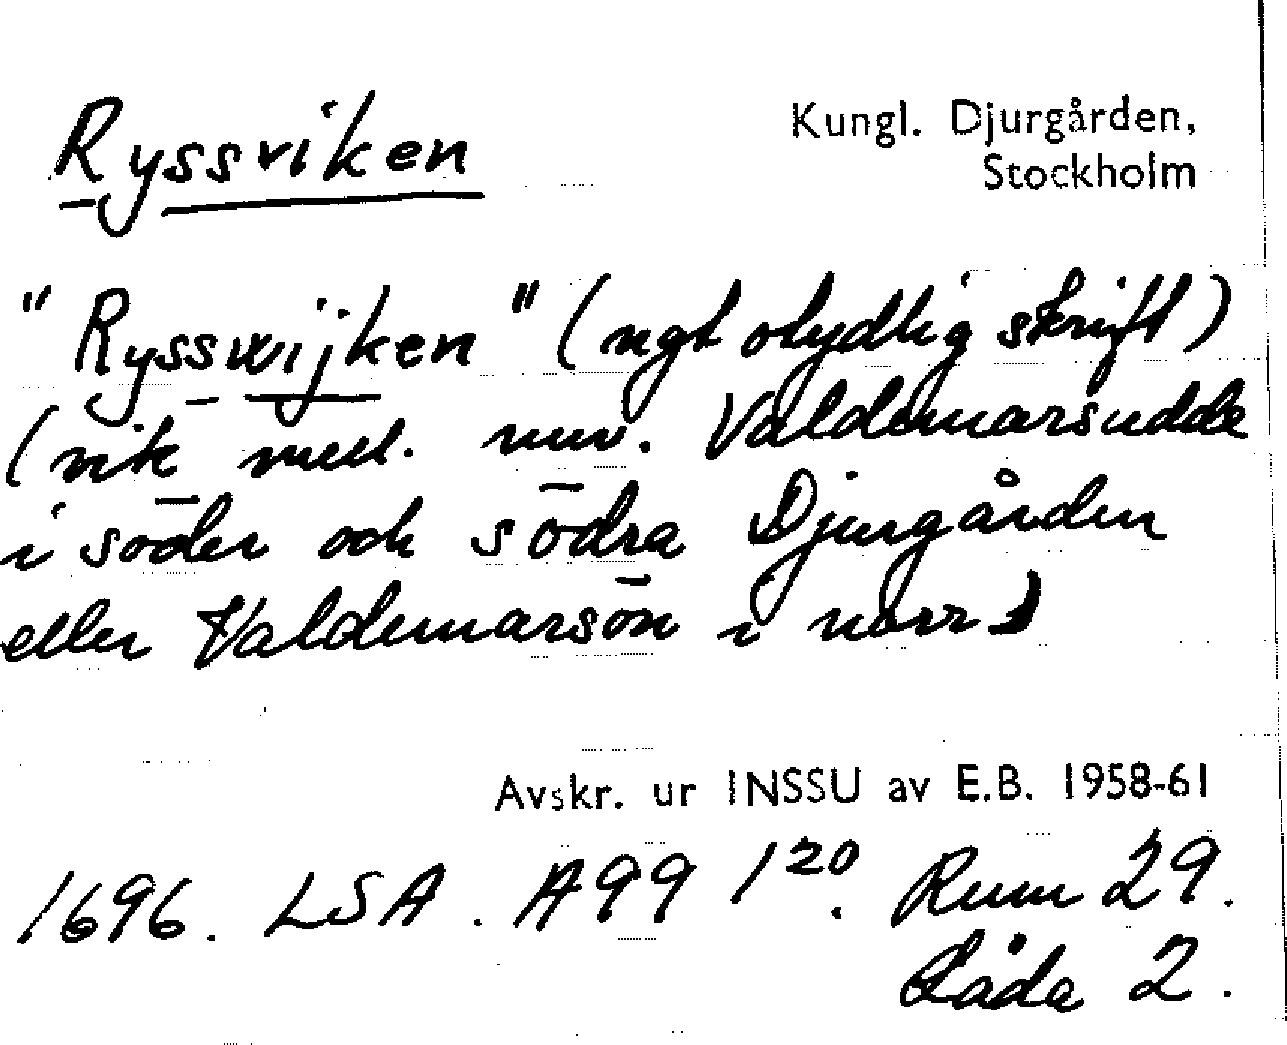 Ryssviken
Kungl. Djurgården,
Stockholm
"Rysswijken" (ngt otydlig skrift)
(vik mell. nuv. Valdemarsudde
i söder och södra Djurgården
eller Valdemarsön i norr)
Avskr. ur INSSU av E.B. 1958-61
1696. LSA. A99 1²⁰. Rum 29.
Låda 2.